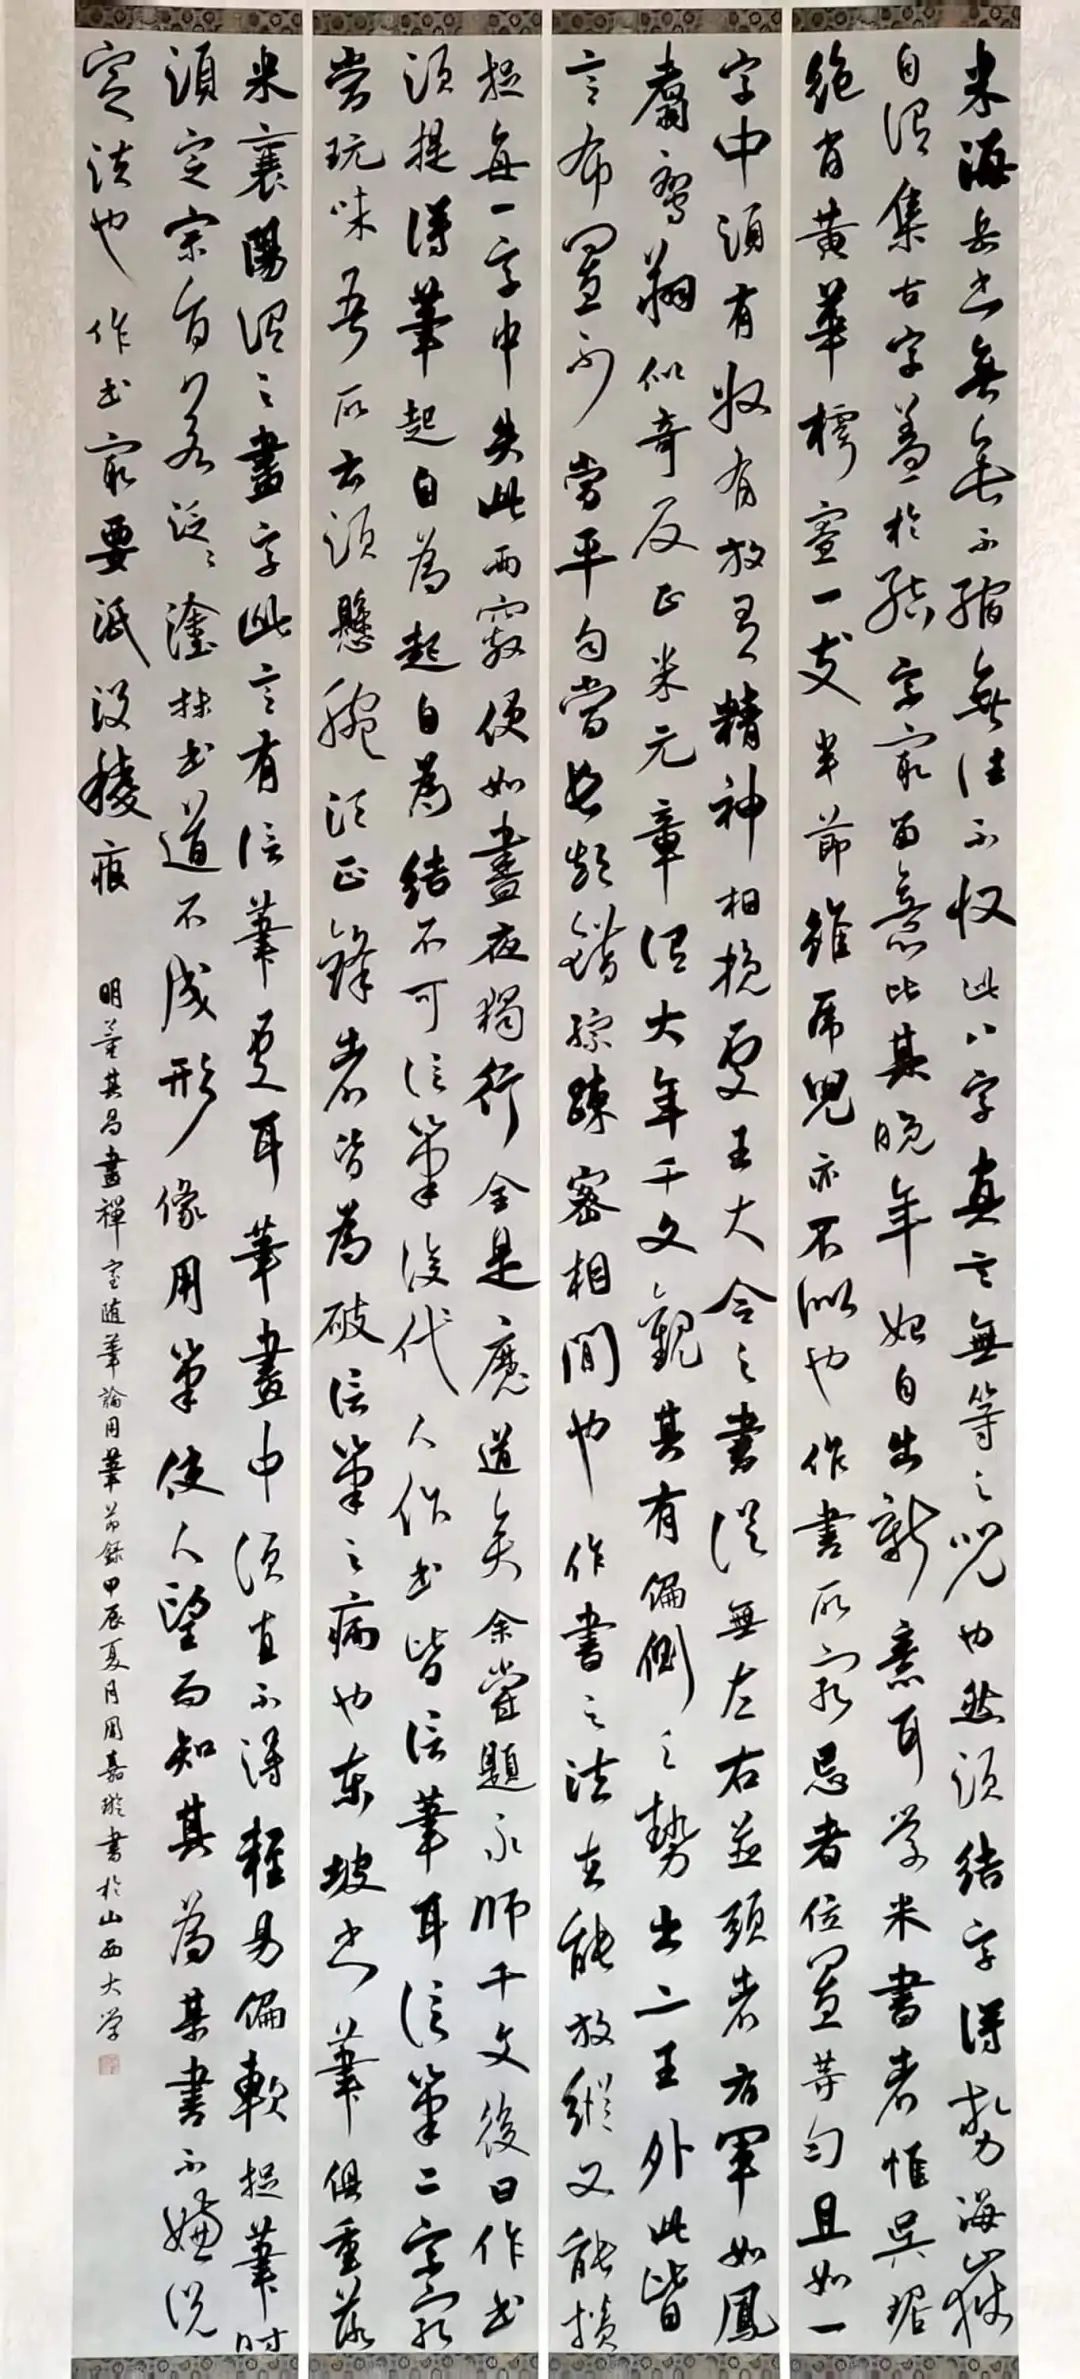 米海岳书無垂不縮無往不收此八字真言無等等之咒也然須結字得勢海嶽
自謂集古字盖於結字最留意比其晚年始自出新意耳学米書者惟吳琚
绝肖黄華樗寮一支半節雖虎兒亦不似也作書所最忌者位置等匀且如一
字中須有收有放有精神相挽處王大令之書從無左右並頭者右軍如鳳
翥鸞翔似奇反正米元章謂大年千文觀其有偏側之勢出二王外此皆
言布置不當平匀當長短錯綜疎密相間也作書之法在能放縱又能攅
捉每一字中失此兩竅便如晝夜獨行全是魔道矣余嘗題永師千文後曰作书
須提得筆起自為起自為結不可信筆後代人作书皆信筆耳信筆二字最
當玩味吾所云須懸腕須正鋒者皆為破信筆之病也東坡书筆俱重落
米襄陽謂之畫字此言有信筆處耳筆畫中須直不得輕易偏軟捉筆時
須定宗旨若泛泛塗抹书道不成形像用筆使人望而知其為某書不嫌說
定法也作书最要泯没稜痕
明董其昌畫禪室随筆論用筆节録甲辰夏月周嘉璇書於山西大学